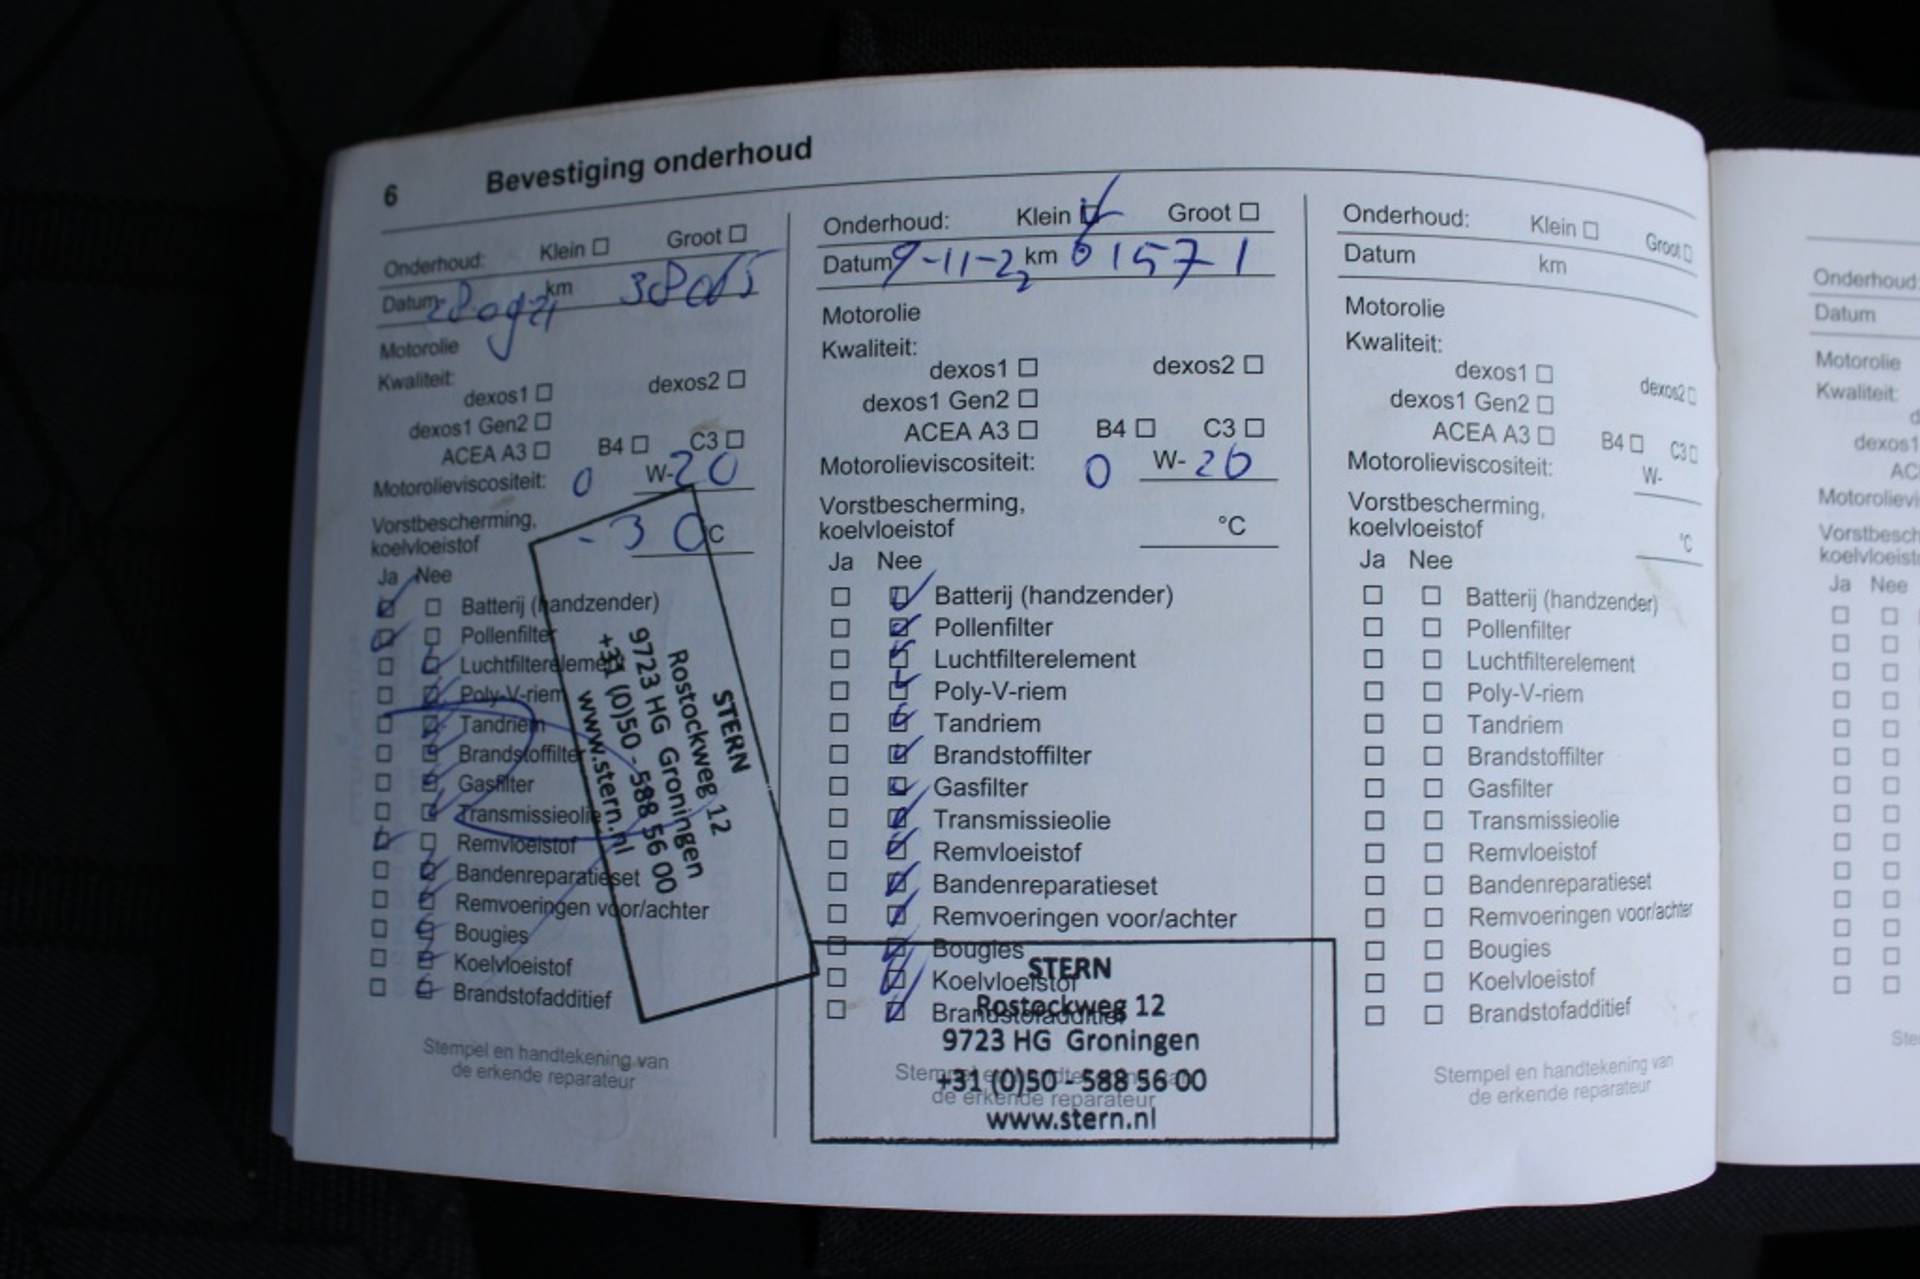 6 Bevestiging onderhoud
Onderhoud: Klein Groot
Datum km
Motorolie
Kwaliteit:
dexos1 dexos2
dexos1 Gen2
ACEA A3 B4 C3
Motorolieviscositeit: 0 W-20
Vorstbescherming,
koelvloeistof -30°C
Ja Nee
Batterij (handzender)
Pollenfilter
Luchtfilterelement
Poly-V-riem
Tandriem
Brandstoffilter
Gasfilter
Transmissieolie
Remvloeistof
Bandenreparatieset
Remvoeringen voor/achter
Bougies
Koelvloeistof
Brandstofadditief
STERN
Rostockweg 12
9723 HG Groningen
+31 (0)50 - 588 56 00
www.stern.nl
Stempel en handtekening van
de erkende reparateur
Onderhoud: Klein Groot
Datum 9-11-22 km 61571
Motorolie
Kwaliteit:
dexos1 dexos2
dexos1 Gen2
ACEA A3 B4 C3
Motorolieviscositeit: 0 W-20
Vorstbescherming,
koelvloeistof °C
Ja Nee
Batterij (handzender)
Pollenfilter
Luchtfilterelement
Poly-V-riem
Tandriem
Brandstoffilter
Gasfilter
Transmissieolie
Remvloeistof
Bandenreparatieset
Remvoeringen voor/achter
Bougies
Koelvloeistof
Brandstofadditief
STERN
Rostockweg 12
9723 HG Groningen
+31 (0)50 - 588 56 00
www.stern.nl
Stempel en handtekening van
de erkende reparateur
Onderhoud: Klein Groot
Datum km
Motorolie
Kwaliteit:
dexos1 dexos2
dexos1 Gen2
ACEA A3 B4 C3
Motorolieviscositeit: W-
Vorstbescherming,
koelvloeistof °C
Ja Nee
Batterij (handzender)
Pollenfilter
Luchtfilterelement
Poly-V-riem
Tandriem
Brandstoffilter
Gasfilter
Transmissieolie
Remvloeistof
Bandenreparatieset
Remvoeringen voor/achter
Bougies
Koelvloeistof
Brandstofadditief
Stempel en handtekening van
de erkende reparateur
Onderhoud:
Datum
Motorolie
Kwaliteit:
dexos1
Ja Nee